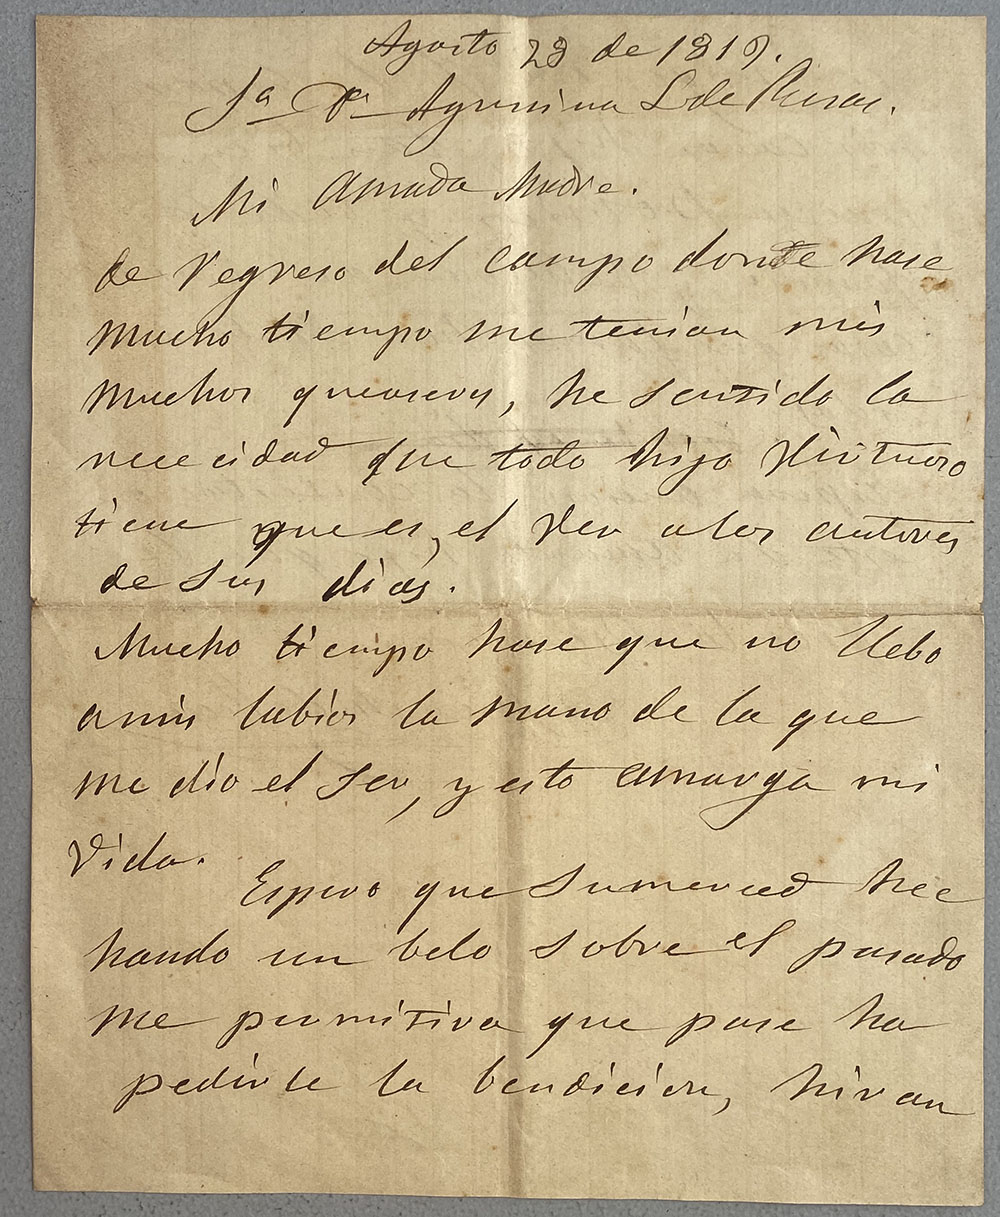 Agosto 28 de 1819.
Sa Da Agustina L de Rosas.
Mi amada Madre.
de regreso del campo donde hase
mucho tiempo me tenian mis
muchos queaseres, he sentido la
nececidad que todo hijo virtuoso
tiene que es, el ver a los autores
de sus dias.
Mucho tiempo hase que no llebo
a mis labios la mano de la que
me dio el ser, y esto amarga mi
vida.
Espero que Sumerced hec
hando un belo sobre el pasado
me permitira que pase ha
pedirle la bendicion, hiran